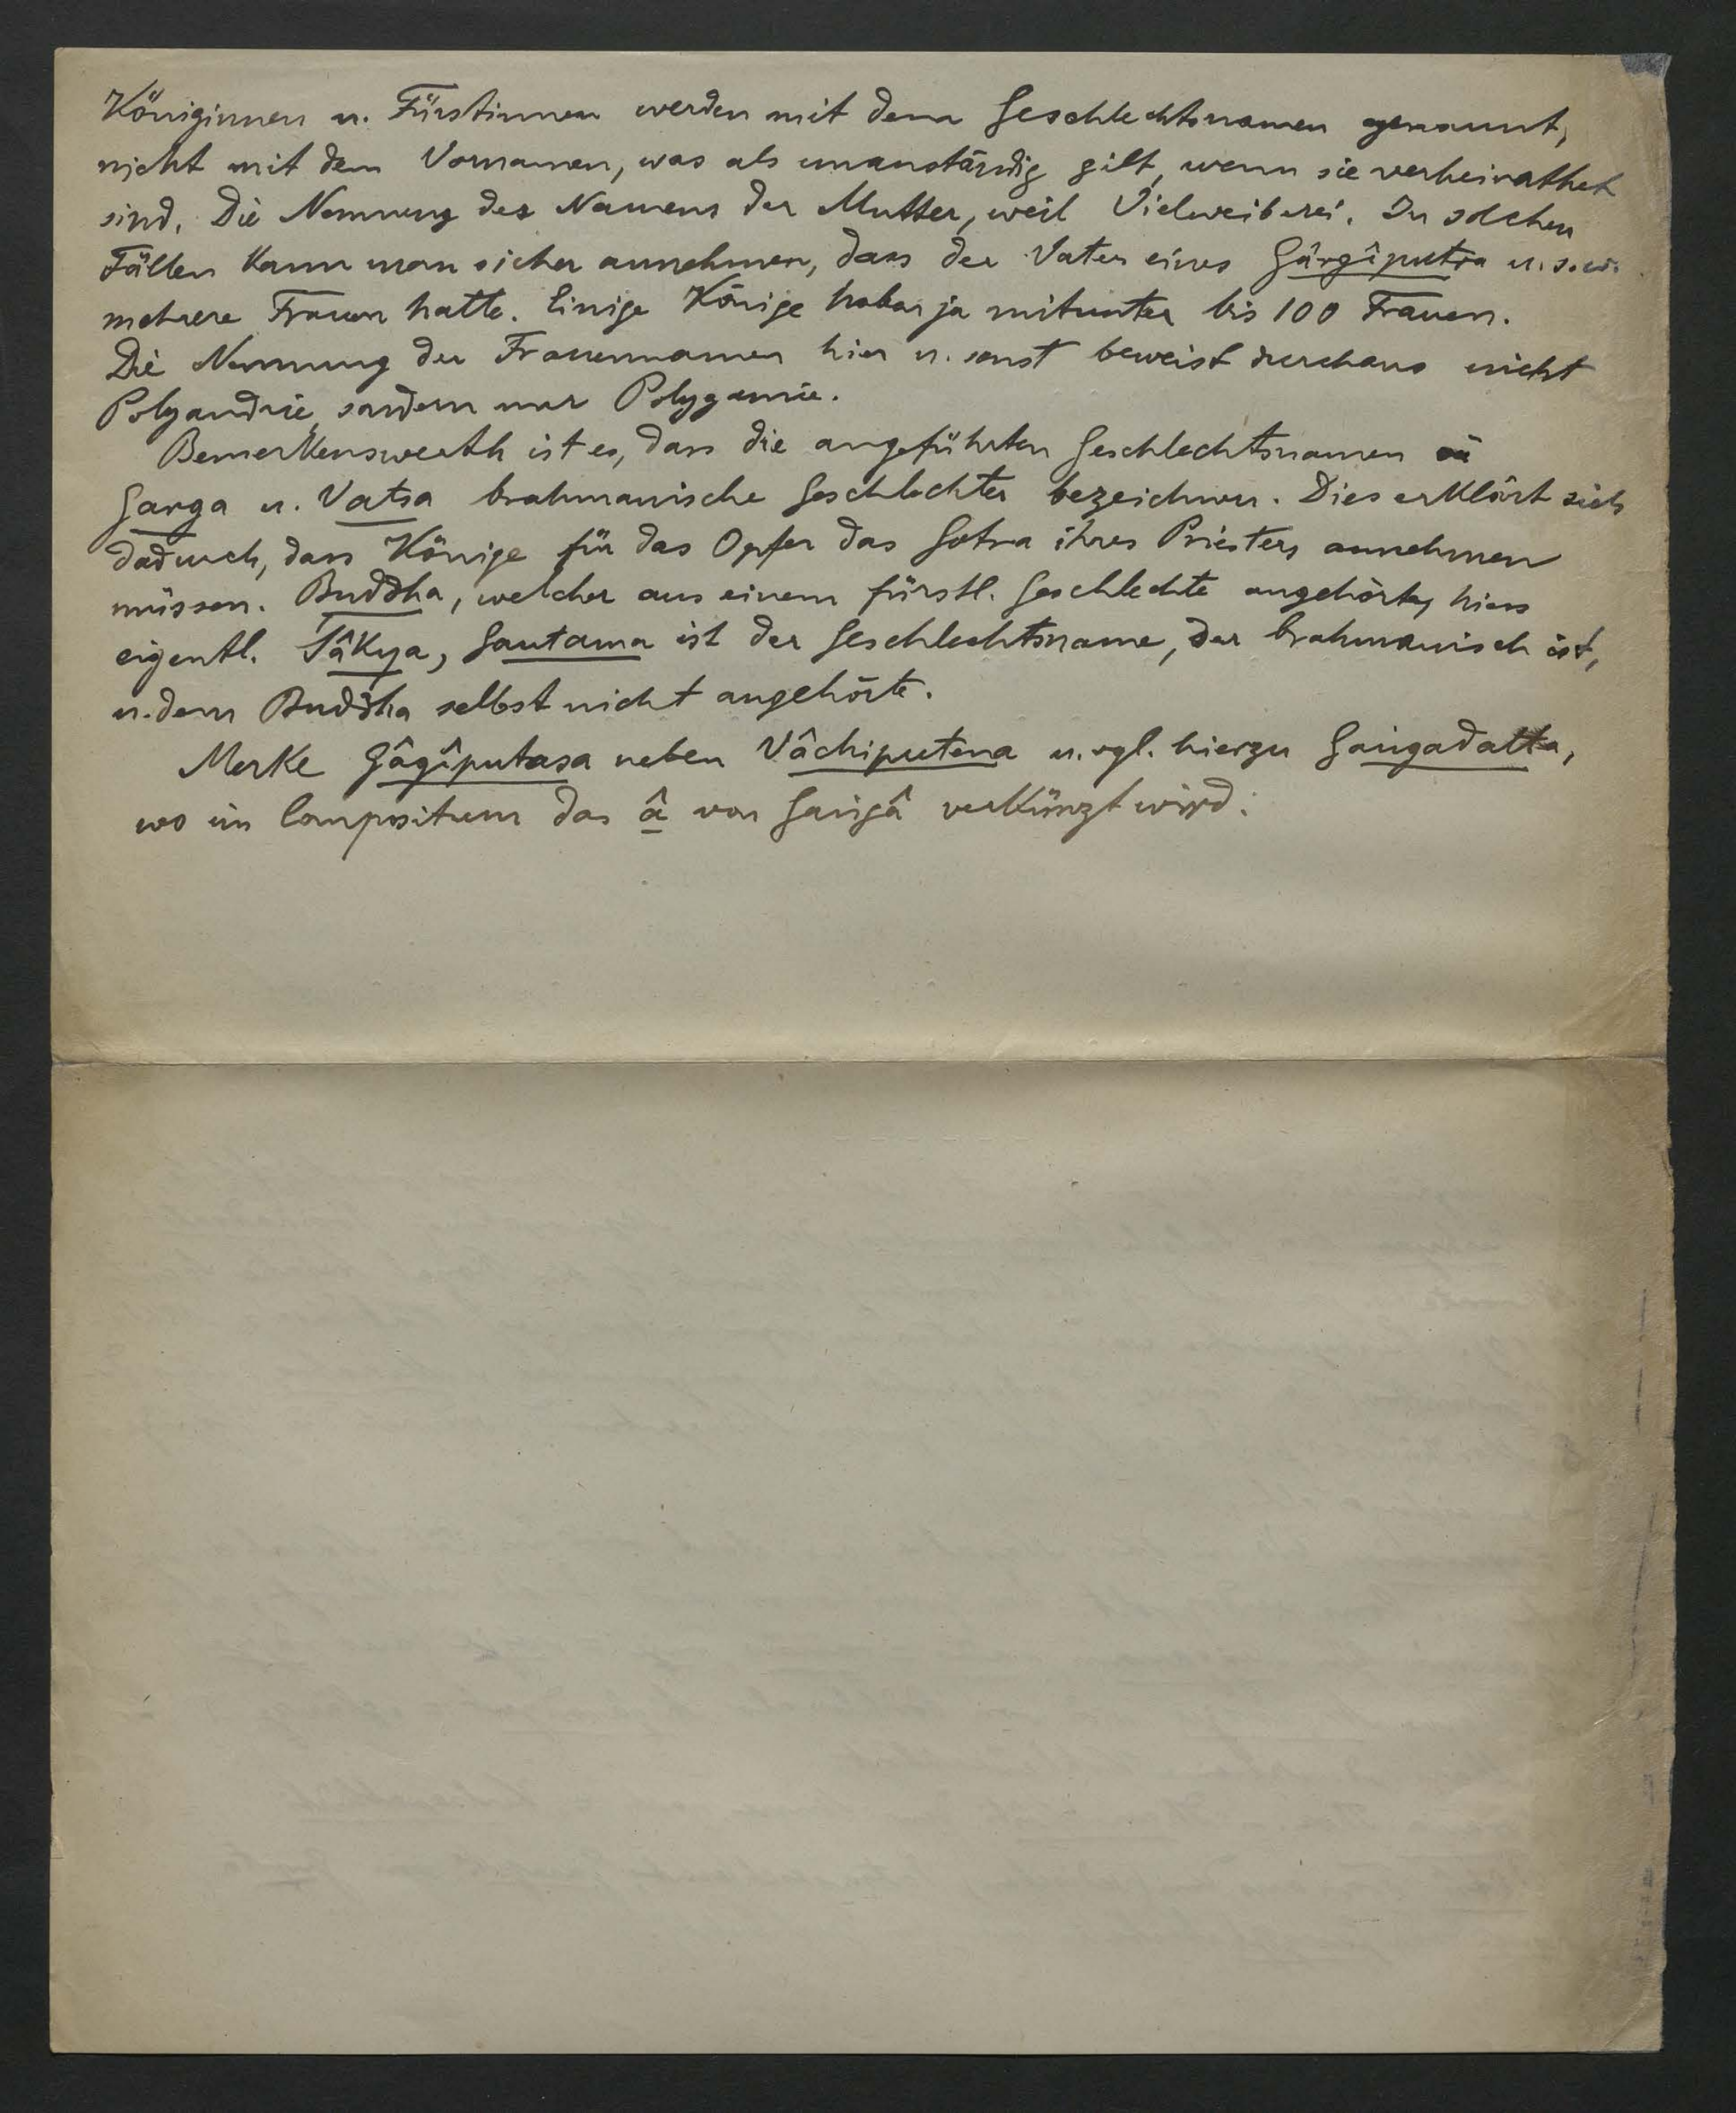 Königinnen u. Fürstinnen werden mit dem Geschlechtsnamen genannt,
nicht mit dem Vornamen, was als unanständig gilt, wenn sie verheirathet
sind. Die Nennung des Namens der Mutter, weil Vielweiberei. In solchen
Fällen kann man sicher annehmen, dass der Vater eines Gârgîputra u.s.w.
mehrere Frauen hatte. Einige Könige haben ja mitunter bis 100 Frauen.
Die Nennung der Frauennamen hier u. sonst beweist durchaus nicht
Polyandrie, sondern nur Polygamie.
Bemerkenswerth ist es, dass die angeführten Geschlechtsnamen
Garga u. Vatsa brahmanische Geschlechter bezeichnen. Dies erklärt sich
dadurch, dass Könige für das Opfer das Gotra ihres Priesters annehmen
müssen. Buddha, welcher aus einem fürstl. Geschlechte angehörte, hiess
eigentl. Śâkya, Gautama ist der Geschlechtsname, der brahmanisch ist,
u. dem Buddha selbst nicht angehörte.
Merke Gâgîputasa neben Vâchiputena u. vgl. hierzu Gaṅgadatta,
wo im Compositum das â von Gaṅgâ verkürzt wird.